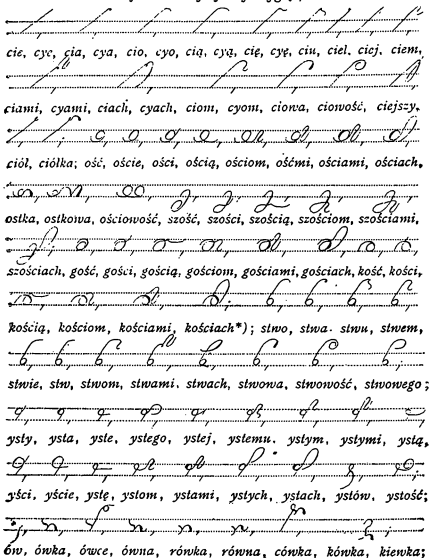 cie, cyc, cia, cya, cio, cyo, cią, cyą, cię, cyę, ciu, ciel. ciej, ciem,
ciami, cyami, ciach, cyach, ciom, cyom, ciowa, ciowość, ciejszy,
ciół, ciółka; ość, oście, ości, ością, ościom, ośćmi, ościami, ościach,
ostka, ostkowa, ościowość, szość, szości, szością, szościom, szościami,
szościach, gość, gości, gością, gościom, gościami, gościach, kość, kości,
kością, kościom, kościami, kościach*); stwo, stwa. stwu, stwem,
stwie, stw, stwom, stwami. stwach, stwowa, stwowość, stwowego;
ysty, ysta, yste, ystego, ystej, ystemu. ystym, ystymi, ystą,
yści. yście, ystę, ystom, ystami, ystych, ystach, ystów. ystość;
ów, ówka, ówce, ówna, rówka, równa, cówka, kówka, kiewka;